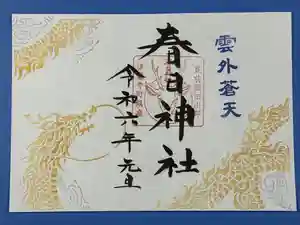 雲外蒼天
春日神社
令和六年元旦